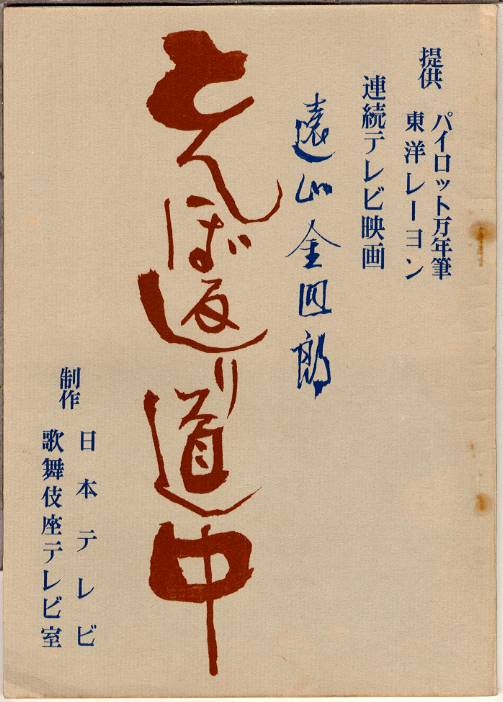 提供
パイロット万年筆
東洋レーヨン
連続テレビ映画
遠山金四郎
とんぼ返り道中
制作
日本テレビ
歌舞伎座テレビ室